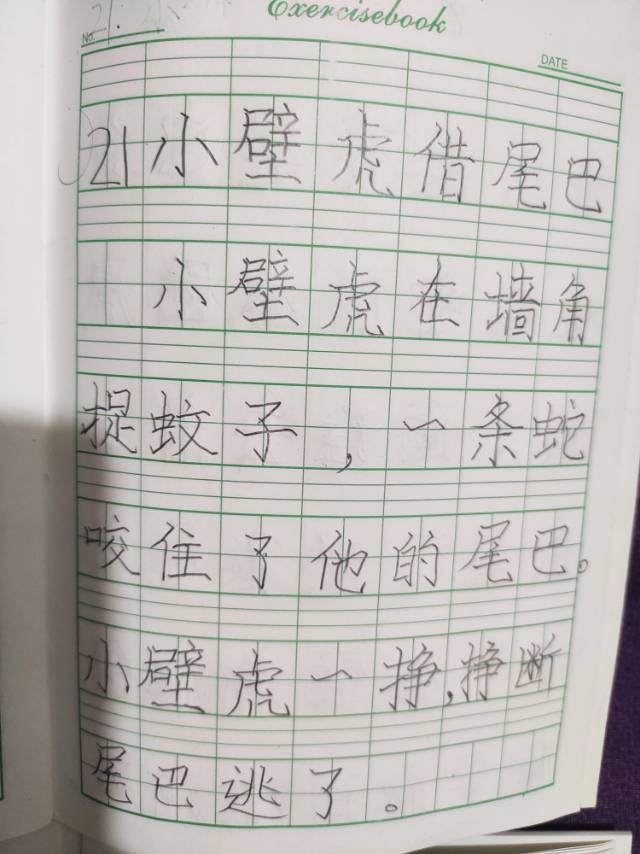 Exercisebook
No. 21.
DATE
21小壁虎借尾巴
小壁虎在墙角
捉蚊子，一条蛇
咬住了他的尾巴。
小壁虎一挣，挣断
尾巴逃了。